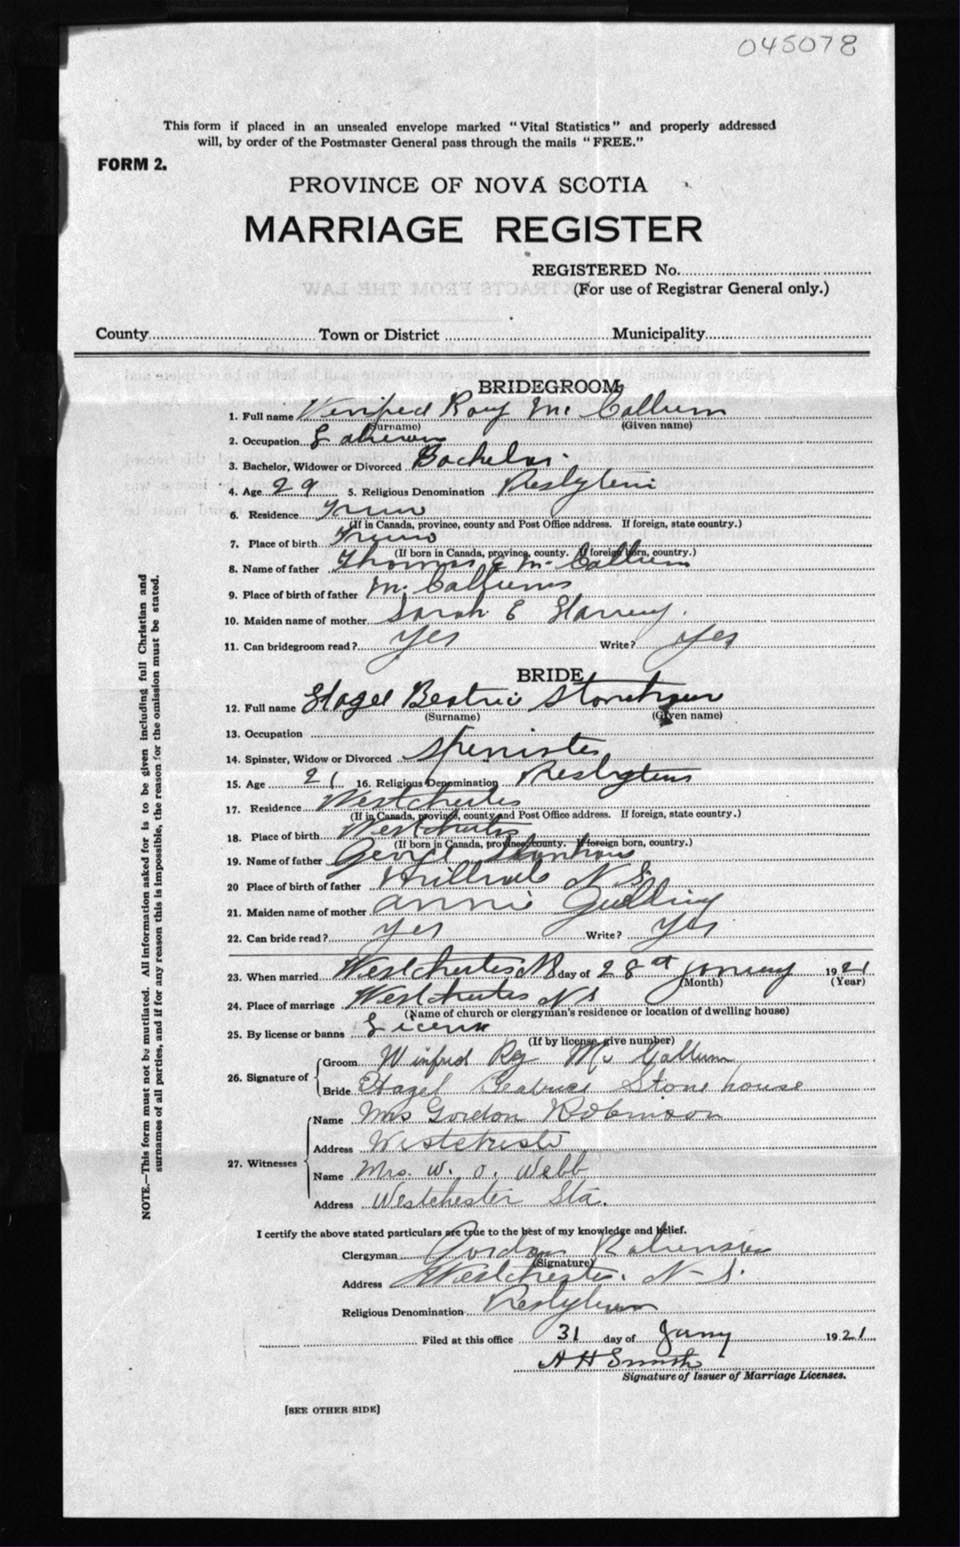 045078
This form if placed in an unsealed envelope marked "Vital Statistics" and properly addressed
will, by order of the Postmaster General pass through the mails "FREE."
FORM 2.
PROVINCE OF NOVA SCOTIA
MARRIAGE REGISTER
REGISTERED No.
(For use of Registrar General only.)
County Town or District Municipality
BRIDEGROOM
1. Full name Winifred Roy Mc Callum
(Surname) (Given name)
2. Occupation
3. Bachelor, Widower or Divorced Bachelor
4. Age 29 5. Religious Denomination
6. Residence Truro
(If in Canada, province, county and Post Office address. If foreign, state country.)
7. Place of birth Truro
(If born in Canada, province, county. If foreign born, country.)
8. Name of father Thomas E Mc Callum
9. Place of birth of father
10. Maiden name of mother Sarah E
11. Can bridegroom read? Yes Write? Yes
BRIDE
12. Full name Hazel Beatric Stonehouse
(Surname) (Given name)
13. Occupation
14. Spinster, Widow or Divorced Spinister
15. Age 21 16. Religious Denomination
17. Residence Westchester
(If in Canada, province, county and Post Office address. If foreign, state country.)
18. Place of birth Westchester
(If born in Canada, province, county. If foreign born, country.)
19. Name of father George
20 Place of birth of father N S
21. Maiden name of mother Annie
22. Can bride read? Yes Write? Yes
23. When married Westchester N S day of 28th January 1921
(Month) (Year)
24. Place of marriage Westchester N S
(Name of church or clergyman's residence or location of dwelling house)
25. By license or banns License
(If by license, give number)
26. Signature of Groom Winfred Roy Mc Callum
Bride Hazel Beatrice Stonehouse
27. Witnesses Name Mrs Gordon Robinson
Address Westchester
Name Mrs. W. O. Webb
Address Westchester Sta.
I certify the above stated particulars are true to the best of my knowledge and belief.
Clergyman Gordon Robinson
(Signature)
Address Westchester. N. S.
Religious Denomination
Filed at this office 31 day of Jany 1921
A H Smith
Signature of Issuer of Marriage Licenses.
[SEE OTHER SIDE]
NOTE.—This form must not be mutilated. All information asked for is to be given including full Christian and
surnames of all parties, and if for any reason this is impossible, the reason for the omission must be stated.